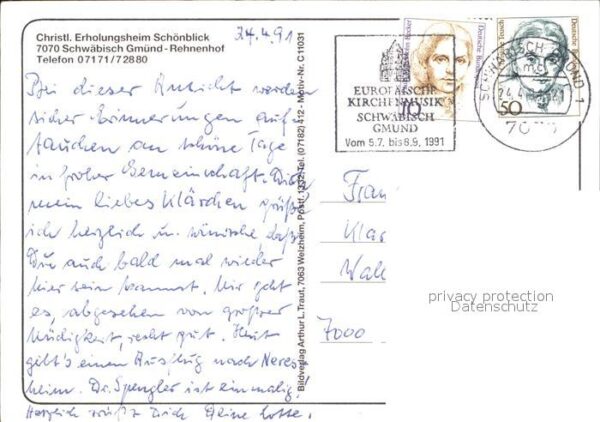 Christl. Erholungsheim Schönblick
7070 Schwäbisch Gmünd - Rehnenhof
Telefon 07171/72880
24.4.91
Bei dieser Ansicht werden
sicher Erinnerungen auf-
tauchen an schöne Tage
in froher Gemeinschaft. Dich
mein liebes Klärchen grüße
ich herzlich u. wünsche, daß
Du auch bald mal wieder
hier sein kannst. Mir geht
es, abgesehen von großer
Müdigkeit, recht gut. Heut
gibt's einen Ausflug nach Neres-
heim. Dr. Spengler ist einmalig!
Herzlich grüßt Dich Deine Lotte.
Bildverlag Arthur L. Traut, 7063 Welzheim, Postf. 1232, Tel. (07182) 412 - Motiv-Nr. C 11031
EUROPÄISCHE
KIRCHENMUSIK
SCHWÄBISCH
GMÜND
Vom 5.7. bis 8.9. 1991
10
Deutsche
50
Deutsche
SCHWÄBISCH GMÜND 1
24.4
Frau
7000
privacy protection
Datenschutz